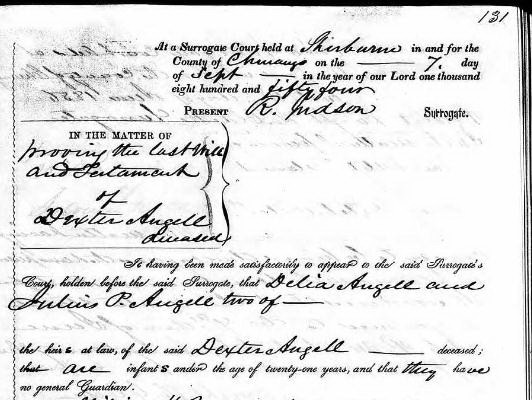 131
At a Surrogate Court held at Sherburne in and for the
County of Chenango on the 7. day
of Sept in the year of our Lord one thousand
eight hundred and fifty four
PRESENT R. Judson Surrogate.
IN THE MATTER OF
proving the last Will
and Testament
of
Dexter Angell
deceased
It having been made satisfactorily to appear to the said Surrogate's
Court, holden before the said Surrogate, that Delia Angell and
Julius P. Angell two of
the heirs at law, of the said Dexter Angell deceased;
that are infants under the age of twenty-one years, and that they have
no general Guardian.